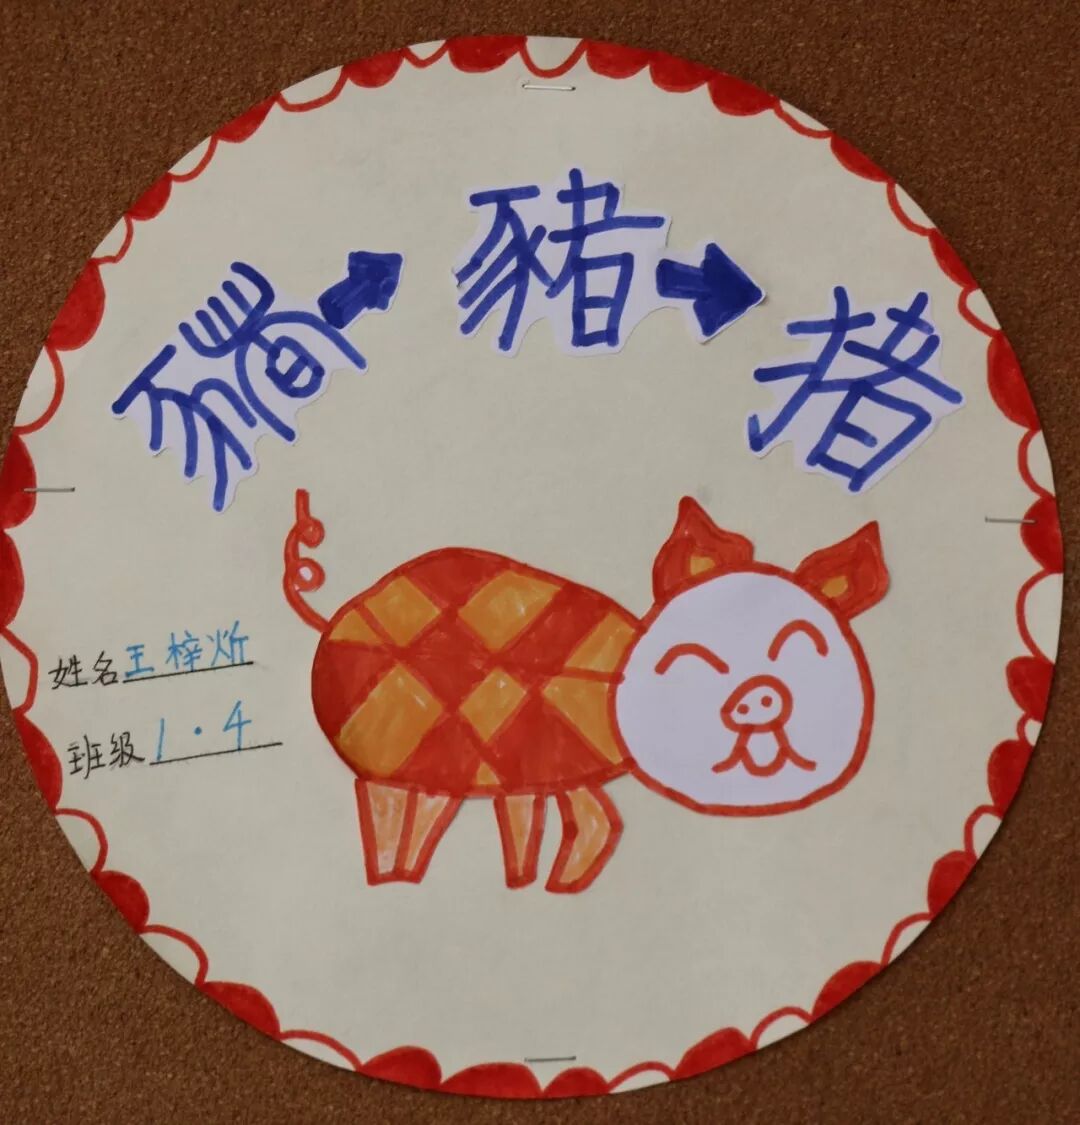 豬 豬 猪
姓名王梓炘
班级1·4